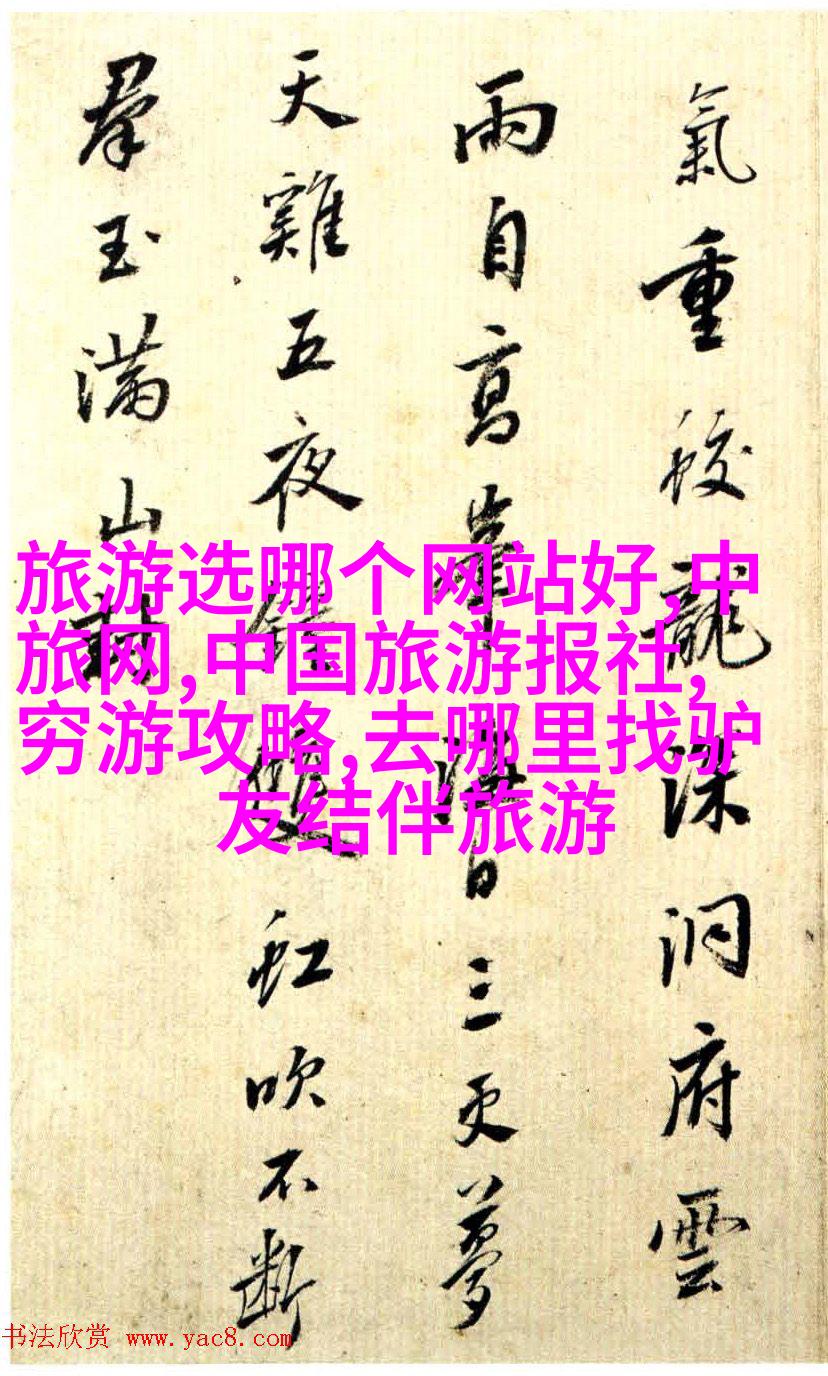 氣重蛟龍深洞府雲
雨自高峯日三更夢
天雞五夜雙虹吹不斷
羣玉滿山
旅游选哪个网站好,中
旅网,中国旅游报社,
穷游攻略,去哪里找驴
友结伴旅游
书法欣赏 www.yac8.com